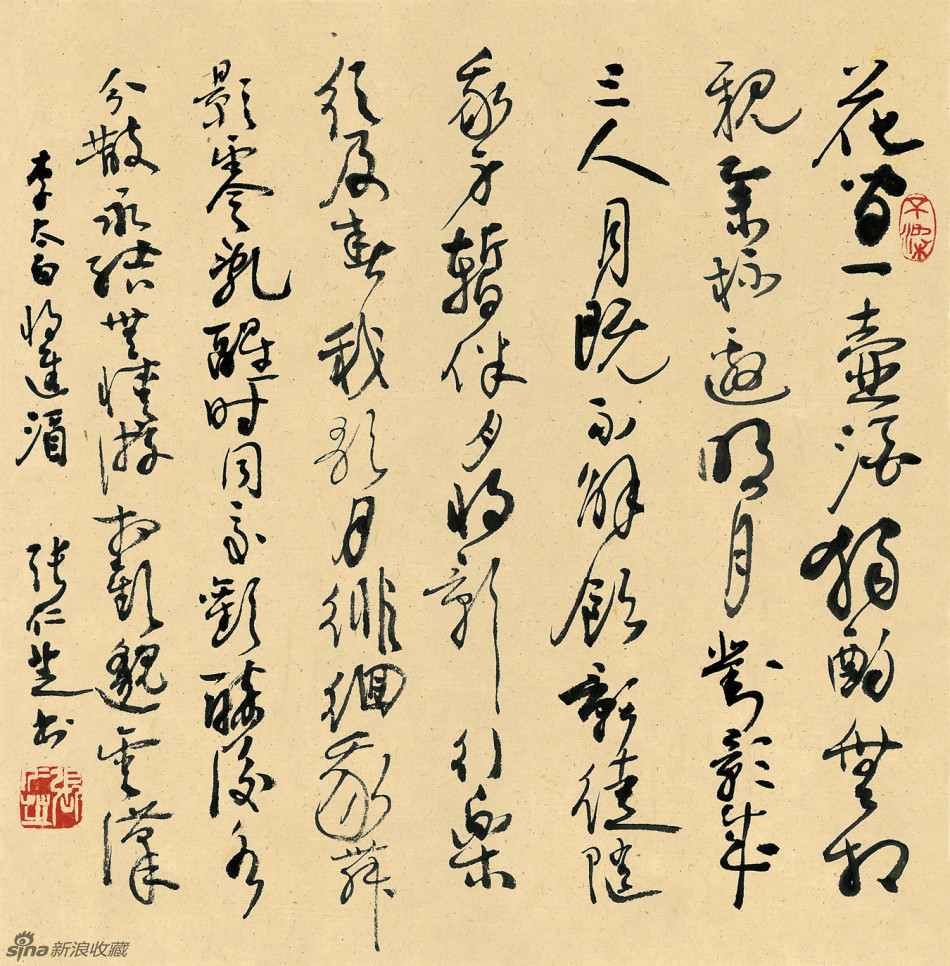 花間一壺酒獨酌無相
親舉杯邀明月對影成
三人月既不解飲影徒隨
我身暫伴月將影行樂
須及春我歌月徘徊我舞
影零亂醒时同交歡醉後各
分散永結無情遊相期邈雲漢
李太白將進酒 張仁芝書
sina新浪收藏